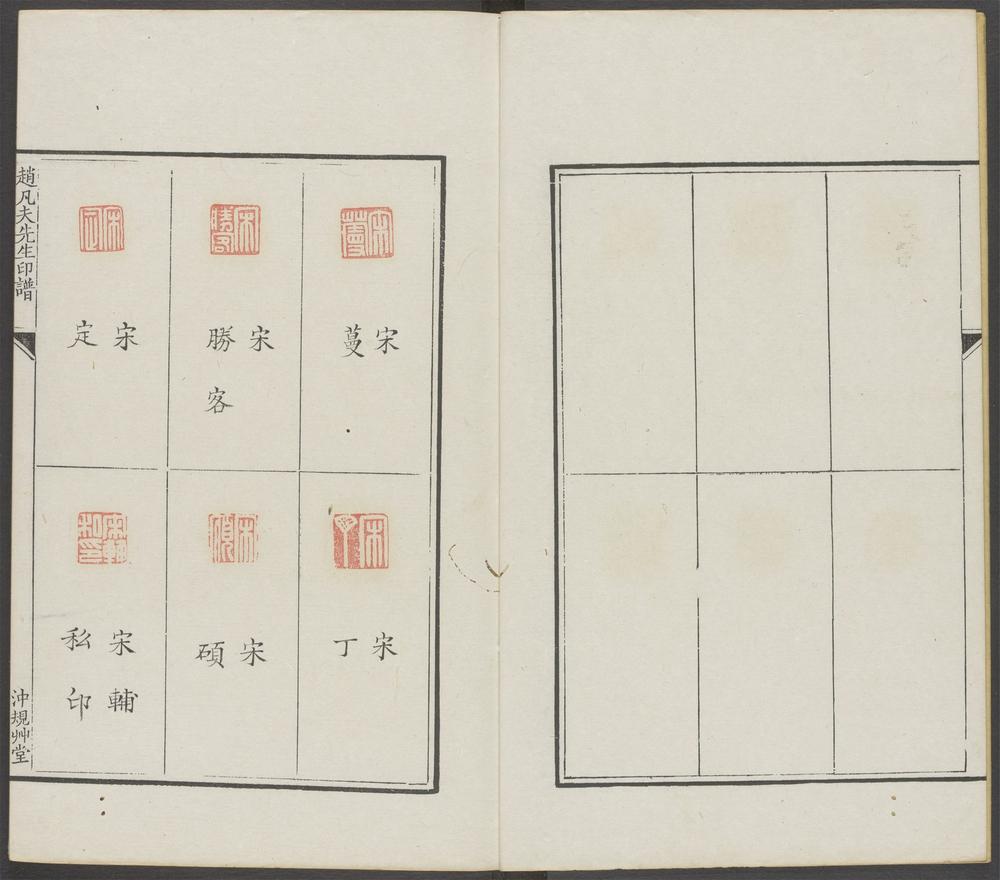 宋蔓
宋勝客
宋定
宋丁
宋碩
宋輔
私印
趙凡夫先生印譜
沖規艸堂